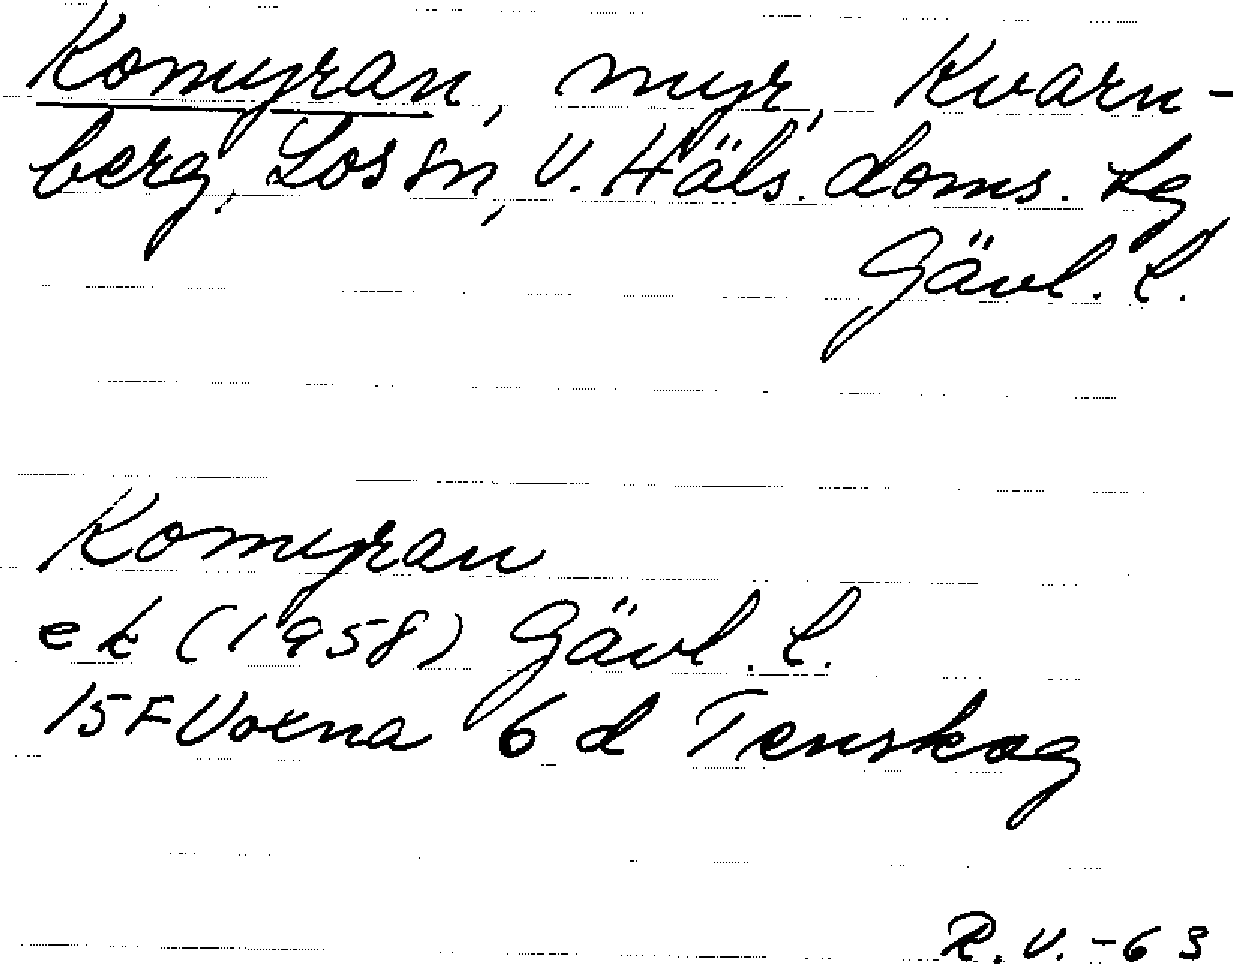 Komyran, myr, Kvarn-
berg, Los sn, V. Häls. doms. lg
Gävl. l.
Komyran
ek (1958) Gävl. l.
15F Voxna 6 d Tenskog
R.V.-63